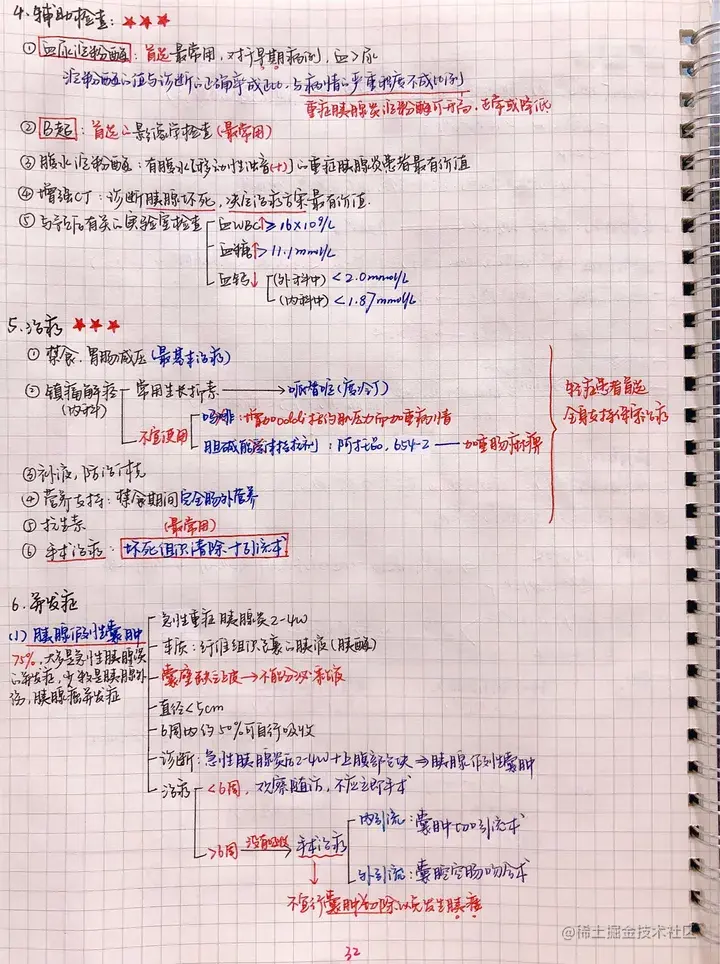 4.辅助检查: ★★★
① 血尿淀粉酶:首选最常用,对于早期病例,血>尿
淀粉酶的值与诊断的正确率成正比,与病情的严重程度不成比例
重症胰腺炎淀粉酶可升高、正常或降低
② B超:首选的影像学检查(最常用)
③ 腹水淀粉酶:有腹水[移动性浊音(+)]的重症胰腺炎患者最有价值
④ 增强CT:诊断胰腺坏死,决定治疗方案最有价值.
⑤ 与预后有关的实验室检查
血WBC↑≥16×10⁹/L
血糖↑>11.1mmol/L
血钙↓
(外科中)<2.0mmol/L
(内科中)<1.87mmol/L
5.治疗 ★★★
① 禁食.胃肠减压(最基本治疗)
② 镇痛解痉 常用生长抑素→哌替啶(度冷丁)
(内科)
不宜使用
吗啡:增加oddi括约肌压力而加重病情
胆碱能受体拮抗剂:阿托品,654-2—加重肠麻痹
轻症患者首选
全身支持保守治疗
③ 补液,防治休克
④ 营养支持:禁食期间完全肠外营养
⑤ 抗生素 (最常用)
⑥ 手术治疗:坏死组织清除+引流术
6.并发症
(1) 胰腺假性囊肿
75%,大多是急性胰腺炎
的并发症,少数是胰腺外
伤,胰腺癌并发症
急性重症胰腺炎2-4w
本质:纤维组织包裹的胰液(胰酶)
囊壁缺乏上皮→不能分泌黏液
直径<5cm
6周内约50%可自行吸收
诊断:急性胰腺炎后2-4w+上腹部包块⇒胰腺假性囊肿
治疗
<6周,观察随访,不应立即手术
>6周 没有吸收→手术治疗
内引流:囊肿切开引流术
外引流:囊腔空肠吻合术
不宜行囊肿切除以免发生胰瘘
32
@稀土掘金技术社区